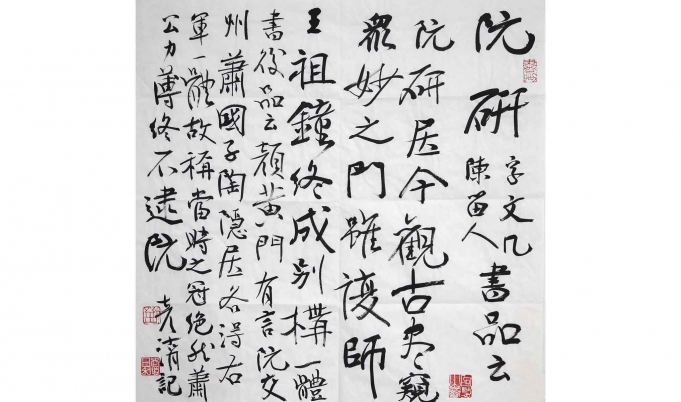 阮研
字文几
陳留人
書品云
阮研居今觀古盡窺
衆妙之門雖復師
王祖鐘終成別構一體
書後品云顏黃門有言阮交
州蕭國子陶隱居各得右
軍一體故稱當時之冠絕然蕭
公力薄終不逮阮
老清記